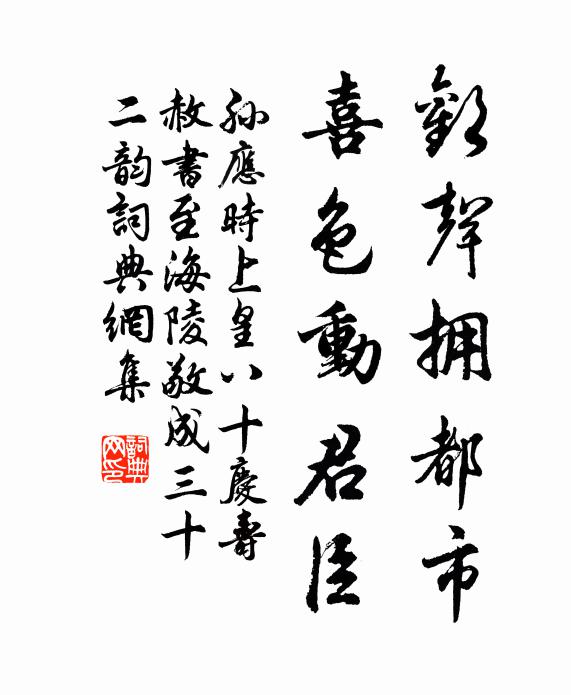 歡聲拥都市
喜色動君臣
孙應時上皇八十慶壽
赦書至海陵敬成三十
二韵詞典網集
詞典网印